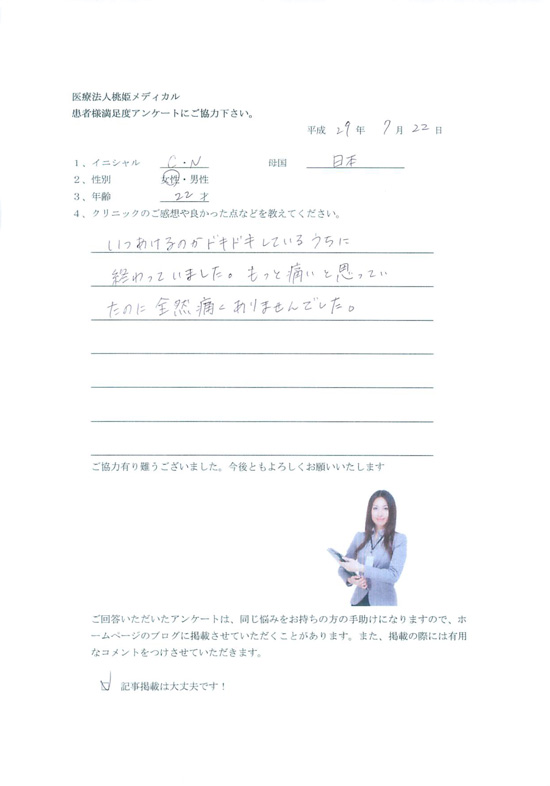 医療法人桃姫メディカル
患者様満足度アンケートにご協力下さい。
平成 29 年 7 月 22 日
1、イニシャル C・N 母国 日本
2、性別 女性・男性
3、年齢 22才
4、クリニックのご感想や良かった点などを教えてください。
いつあけるのかドキドキしているうちに
終わっていました。もっと痛いと思ってい
たのに全然痛くありませんでした。
ご協力有り難うございました。今後ともよろしくお願いいたします
ご回答いただいたアンケートは、同じ悩みをお持ちの方の手助けになりますので、ホ
ームページのブログに掲載させていただくことがあります。また、掲載の際には有用
なコメントをつけさせていただきます。
記事掲載は大丈夫です！